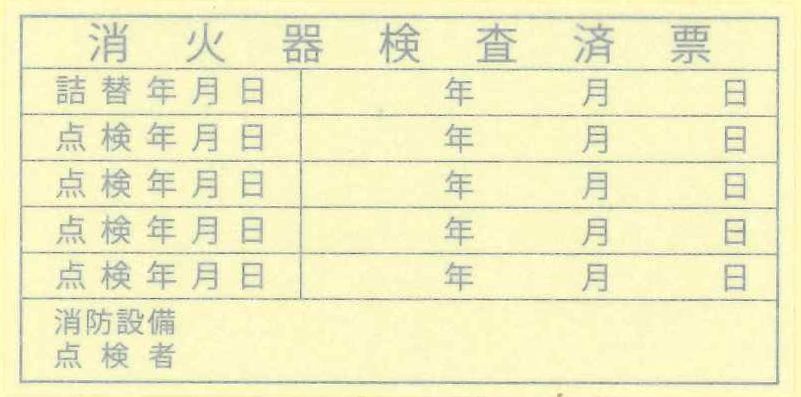 消火器検査済票
詰替年月日 年 月 日
点検年月日 年 月 日
点検年月日 年 月 日
点検年月日 年 月 日
点検年月日 年 月 日
消防設備
点検者